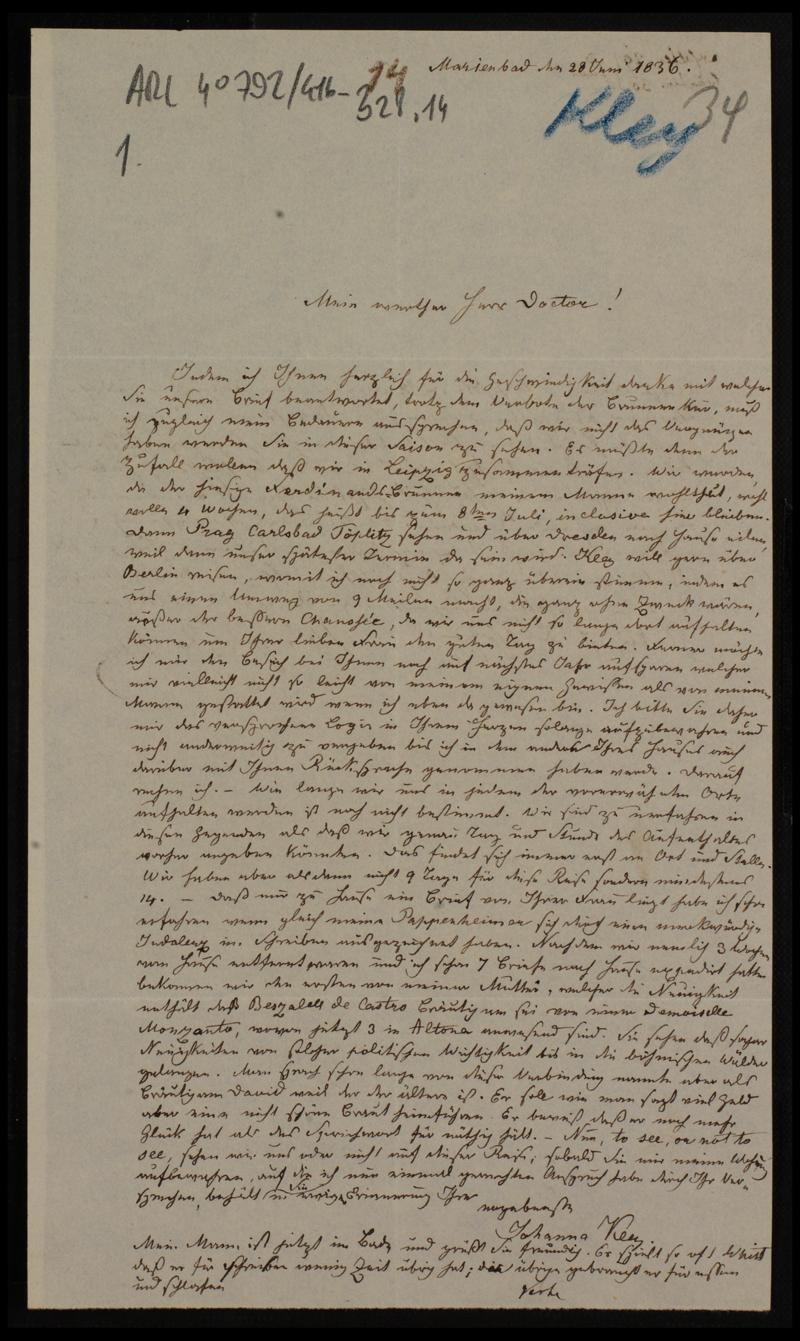 Marienbad den 28 Juni 1836.
ARC 40792/416-
14
321.14
Kley
34
1.
Mein werther Herr Doctor!
Indem ich Ihnen herzlich für die Geschwindigkeit danke mit welcher
Sie unsern Brief beantwortet, trotz dem Verbote der Brunnenkur, muß
ich zugleich mein Bedauern aussprechen, daß wir nicht das Vergnügen
haben werden Sie in dieser Saison zu sehen. Es müßte denn der
Zufall wollen daß wir in Leipzig zusammenträfen. Wir werden,
da der hiesige Ferdinandsbrunnen meinem Manne wohlthut, wohl
volle 4 Wochen, das heißt bis zum 8ten Juli, inclusive hier bleiben.
Dann Prag Carlsbad Töplitz sehen und über Dresden nach Hause eilen,
weil dann unser spätester Termin da sein wird. Kley will gern über
Berlin reisen, womit ich noch nicht so ganz überein stimme, indem es
uns einen Umweg von 9 Meilen macht, die ganz ohne Zweck wären,
außer der bessern Chaussée, da wir uns nicht so lange dort aufhalten
können um Ihrer lieben Frau den guten Tag zu bieten. Ferner möchte
ich mir den Besuch bei Ihnen noch auf nächstes Jahr aufsparen welcher
mir vielleicht nicht so leicht von meinem eignen Gewissen als von meinem
Manne gestattet wird wenn ich eben da gewesen bin. Ich bitte Sie daher
mir das versprochene Logis in Ihrem Herzen solange aufzubewahren und
nicht anderweitig zu vergeben bis ich in dem andern Ihres Hauses auch
darüber mit Ihnen Rücksprache genommen haben werde. Darauf
rechne ich. – Wie lange wir uns in jedem der vorerwähnten Orte
aufhalten werden ist noch nicht bestimmt. Wir sind zu unerfahren in
diesen Gegenden als daß wir genau Tag und Stunde des Aufenthaltes
vorher angeben könnten. Das findet sich immer erst an Ort und Stelle.
Wir haben aber alsdann nicht 9 Tage für diese Reise sondern mindestens
14. – Daß mir zu Hause ein Brief von Ihrer Frau liegt habe ich schon
erfahren wenn gleich meine Pappenheimer sich durch eine merkwürdige
Indolenz im Schreiben ausgezeichnet haben. Nachdem wir nemlich 3 Wochen
von Hause entfernt waren und ich schon 7 Briefe nach Hause expedirt hatte
bekamen wir den ersten von meiner Mutter, welcher die Neuigkeit
enthält daß Bezaleel de Castro Bräutigam sei von einer Demoiselle
Monsanto, wovon jetzt 3 in Altona anwesend sind. Sie sehen daß sogar
Neuigkeiten von solcher politischen Wichtigkeit bis in die böhmischen Wälder
gelangen. Man sprach schon lange von dieser Verbindung nannte aber als
Bräutigam David weil der der ältere ist. Er soll wie man sagt viel Geld
aber eine nicht schöne Braut heimführen. Er beweist daß er noch mehr
Glück hat als das Sprichwort für nöthig hält. – Nun, to see, or not to
see, sehen wir uns oder nicht auf dieser Reise; sobald Sie mir meine Wohnung
aufbewahren, auf die ich nun einmal gerechten Anspruch habe durch Ihr Ver-
sprechen, behält Sie in ewiger Erinnerung Ihre
ergebenste
Johanna Kley
Mein Mann ist jetzt im Bade und grüßt Sie freundlich. Er spielt so oft Whist
daß er für schreiben wenig Zeit übrig hat; die übrige gebraucht er für essen
und schlafen